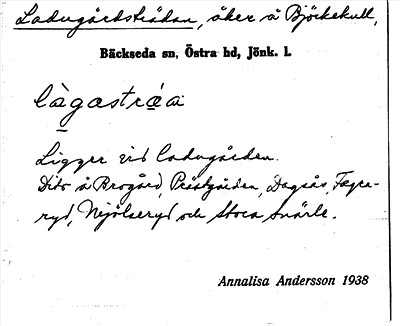 Ladugårdsträdan, åker å Björkekull,
Bäckseda sn, Östra hd, Jönk. l.
làgastráa
Ligger vid ladugården.
Dito å Brogård, Prästgården, Dagsås, Fagra-
ryd, Mjölseryd och Stora Snärle.
Annalisa Andersson 1938